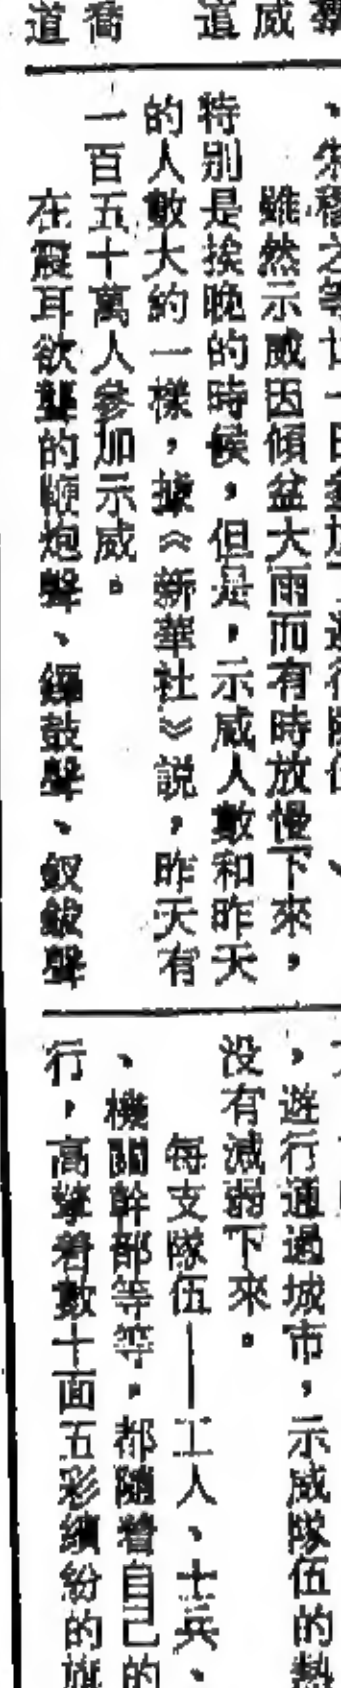 威
道
喬
道
、朱穆之等廿一日參加了遊行隊伍
雖然示威因傾盆大雨而有時放慢下來，
特別是挨晚的時候，但是，示威人數和昨天
的人數大約一樣，據《新華社》説，昨天有
一百五十萬人參加示威。
在震耳欲聾的鞭炮聲、鑼鼓聲、釵鈸聲
，遊行通過城市，示威隊伍的熱
没有減弱下來。
每支隊伍——工人、士兵、
、機關幹部等等，都隨着自己的
行，高擎着數十面五彩繽紛的旗